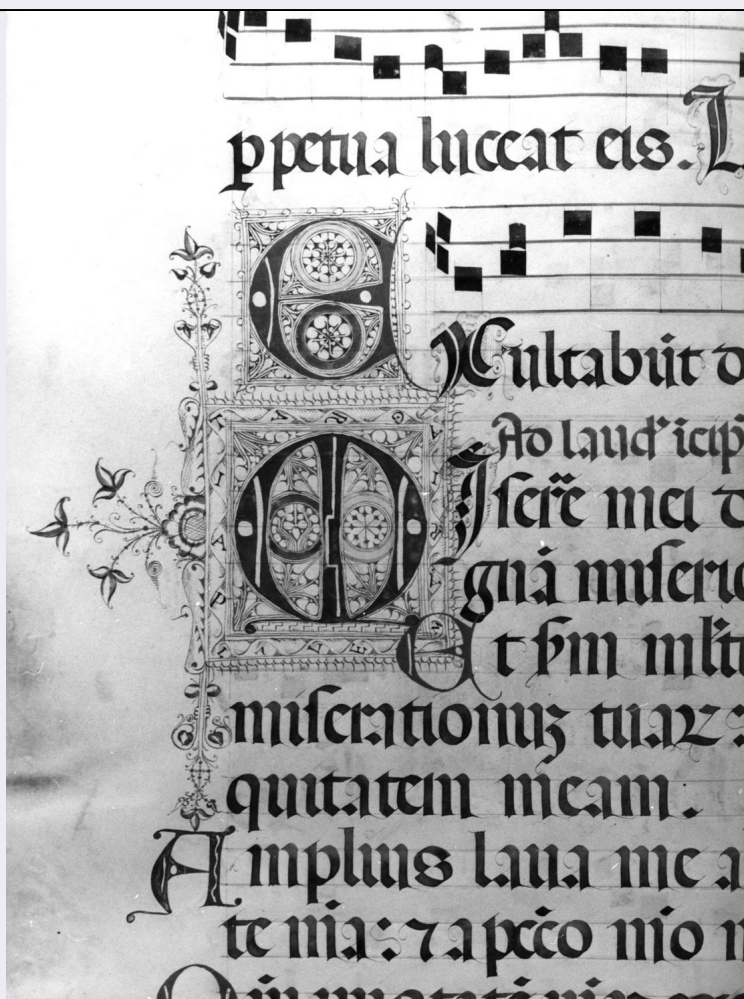 ppetua luceat eis. L
EXultabūt d
Ad laud' īcip
MIsere᷑ mei d
gnā miseric
Et sm mltı
miserationuꝫ tuaꝝ:
quitatem meam.
Amplius laua me a
te mīa: ⁊ a pctō mō